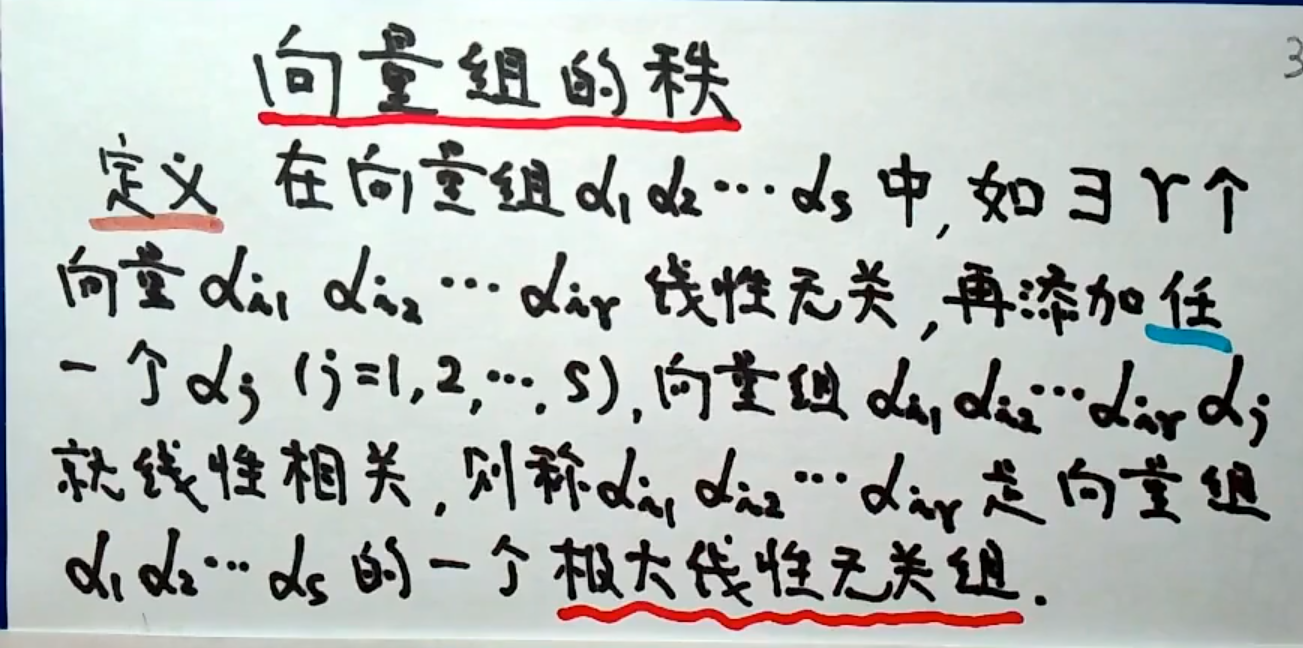 3
向量组的秩
定义 在向量组α₁ α₂ ⋯ αₛ 中, 如∃ r个
向量 αᵢ₁ αᵢ₂ ⋯ αᵢᵣ 线性无关, 再添加任
一个 αⱼ (j=1, 2, ⋯, s), 向量组 αᵢ₁ αᵢ₂ ⋯ αᵢᵣ αⱼ
就线性相关, 则称αᵢ₁ αᵢ₂ ⋯ αᵢᵣ 是向量组
α₁ α₂ ⋯ αₛ 的一个极大线性无关组.